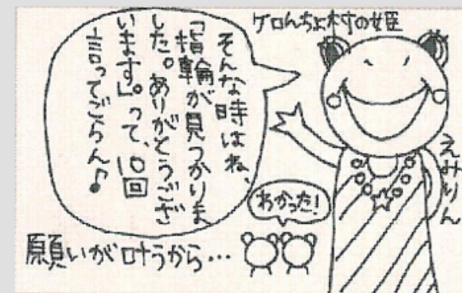 ゲロんちょ村の姫
えみりん
そんな時はね、
「指輪が見つかりま
した。ありがとうござ
います」。って、10回
言ってごらん♪
わかった!
願いが叶うから…